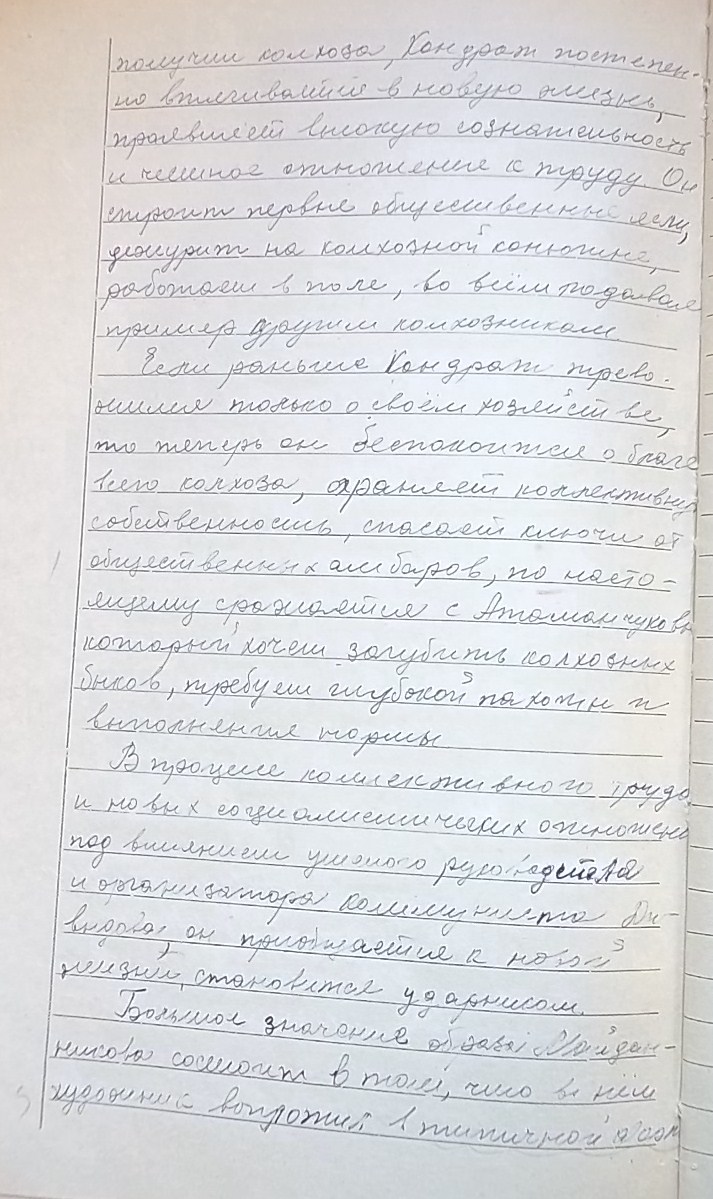 получии колхоза, Кондрат постепен-
но втягивается в новую жизнь,
проявляет высокую сознательность
и честное отношение к труду. Он
строит первые общественные ясли,
дежурит на колхозной конюшне,
работает в поле, во всём подавая
пример другим колхозникам.
Если раньше Кондрат трево-
жился только о своём хозяйстве,
то теперь он беспокоится о благе
всего колхоза, охраняет коллективную
собственность, спасает ключи от
общественных амбаров, по насто-
ящему сражается с Атаманчуковым
который хочет загубить колхозных
быков, требует глубокой пахоты и
выполнения нормы
В процессе коллективного труда
и новых социалистических отношений
под влиянием умелого руководителя
и организатора коммуниста Да-
выдова, он приобщается к новой
жизни, становится ударником.
Большое значение образа Майдан-
никова состоит в том, что в нём
художник выразил в типичной